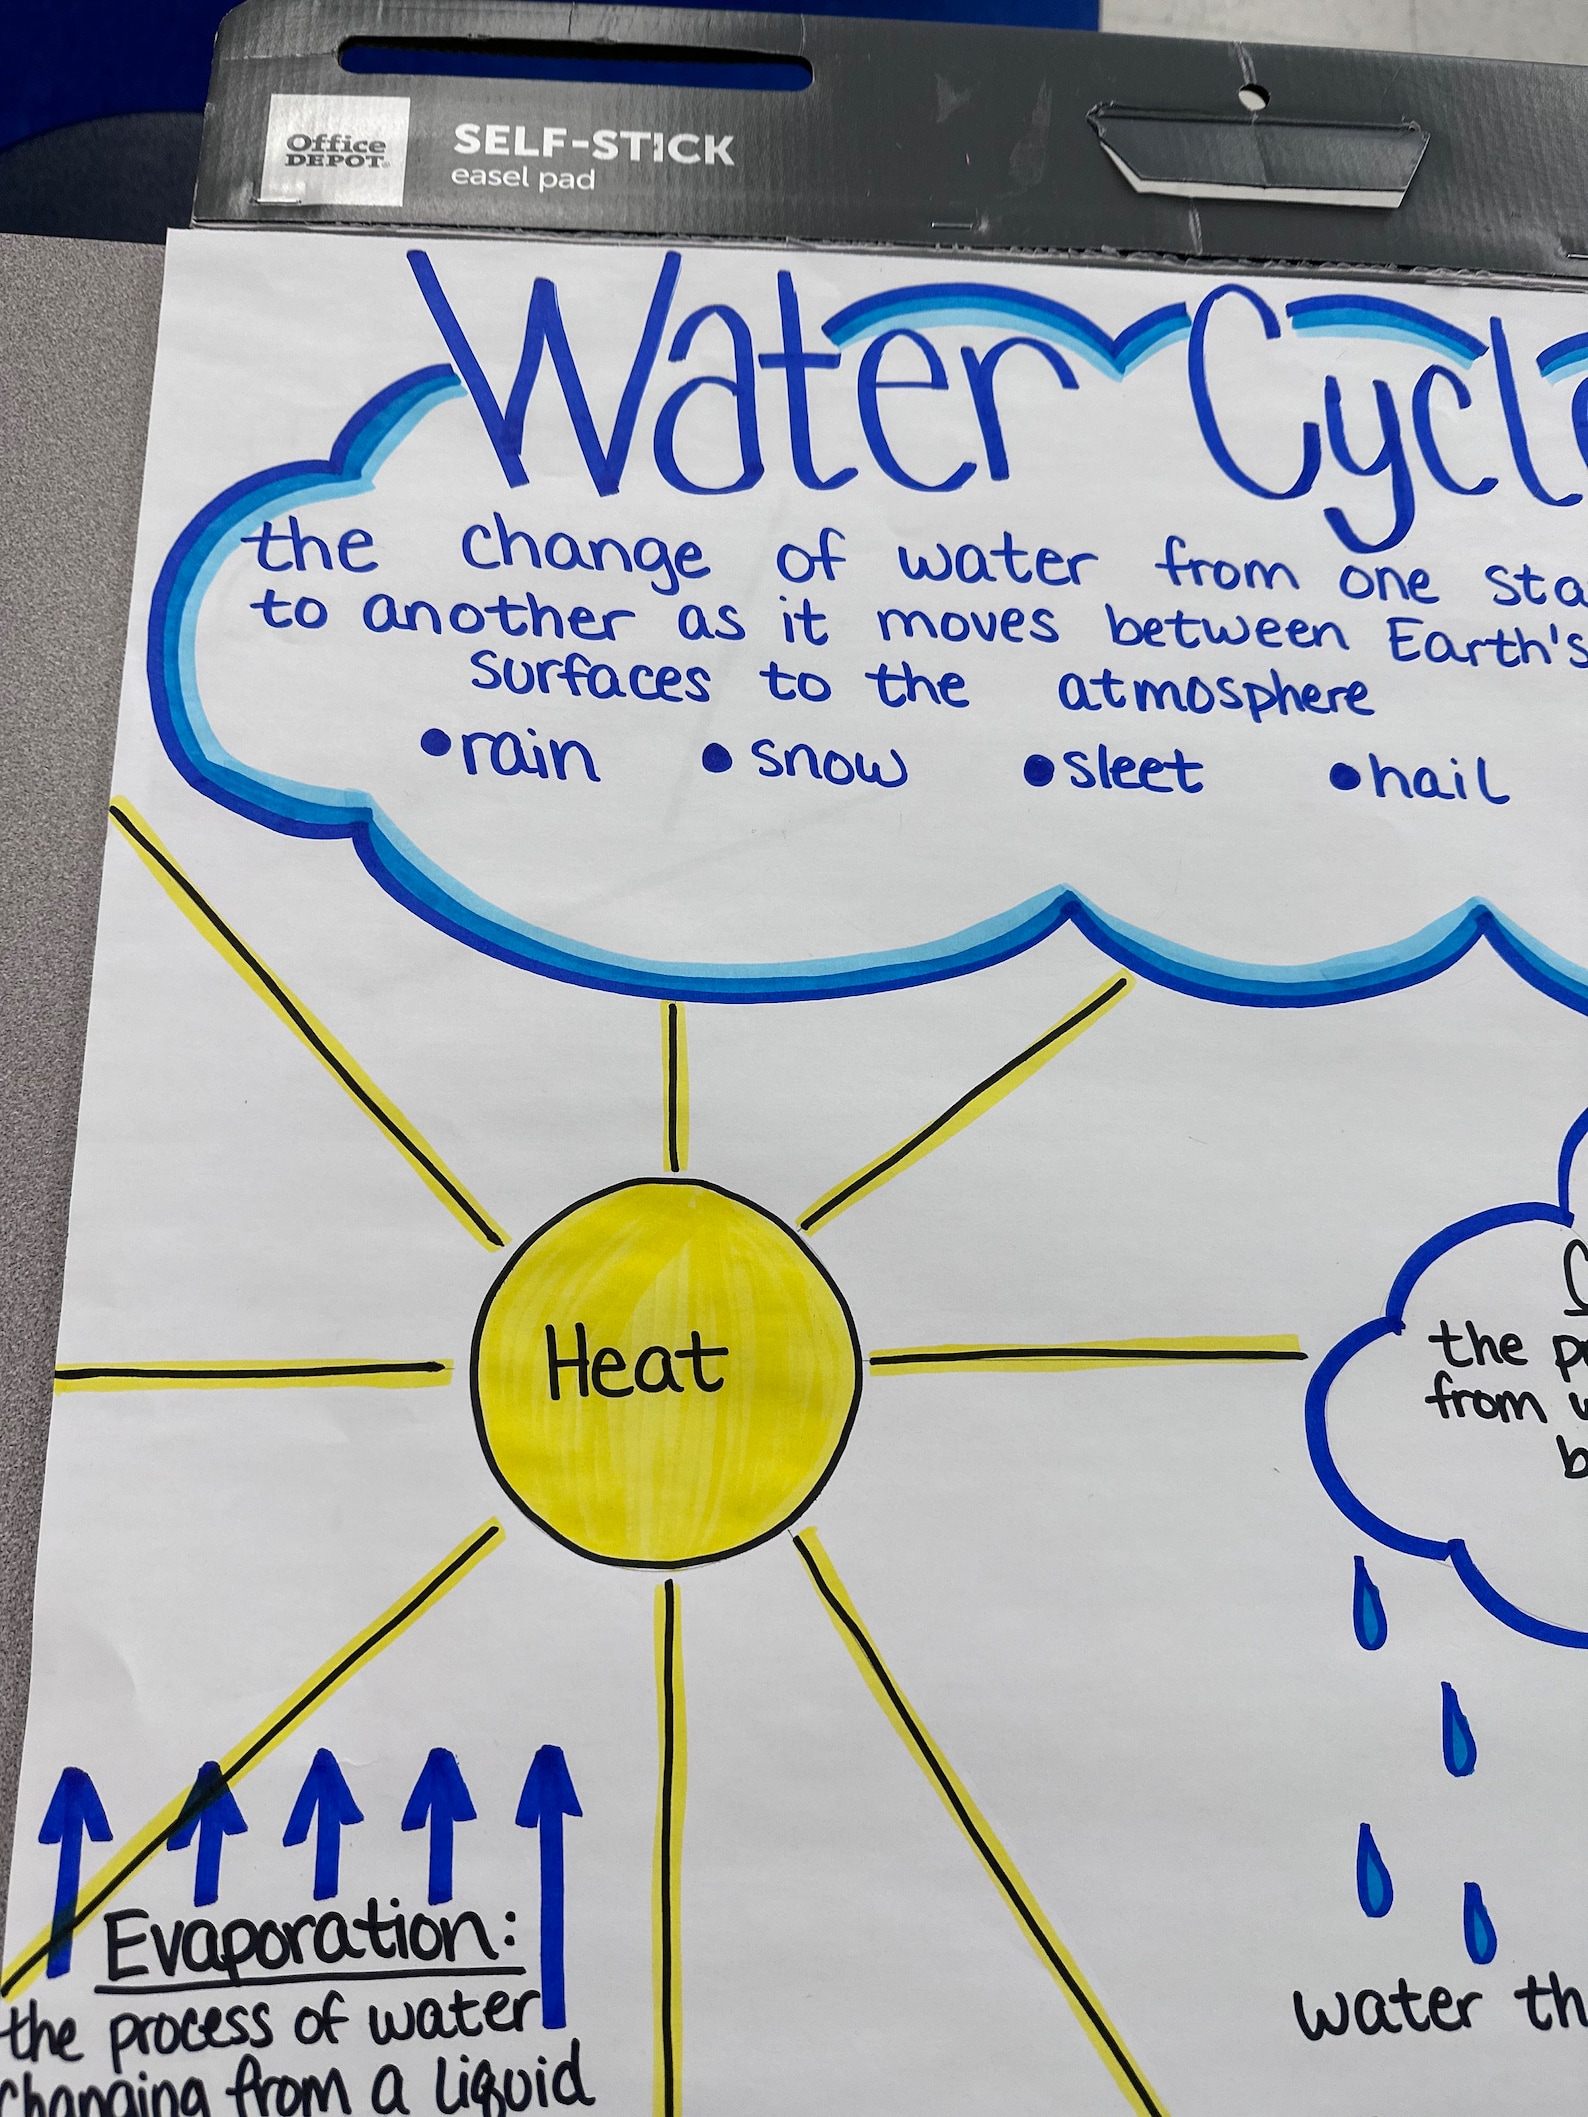 Office
DEPOT
SELF-STICK
easel pad
Water Cycle
the change of water from one
to another as it moves between Earth's
surfaces to the atmosphere
•rain •snow •sleet •hail
Heat
the
from
Evaporation:
the process of water
changing from a liquid
water